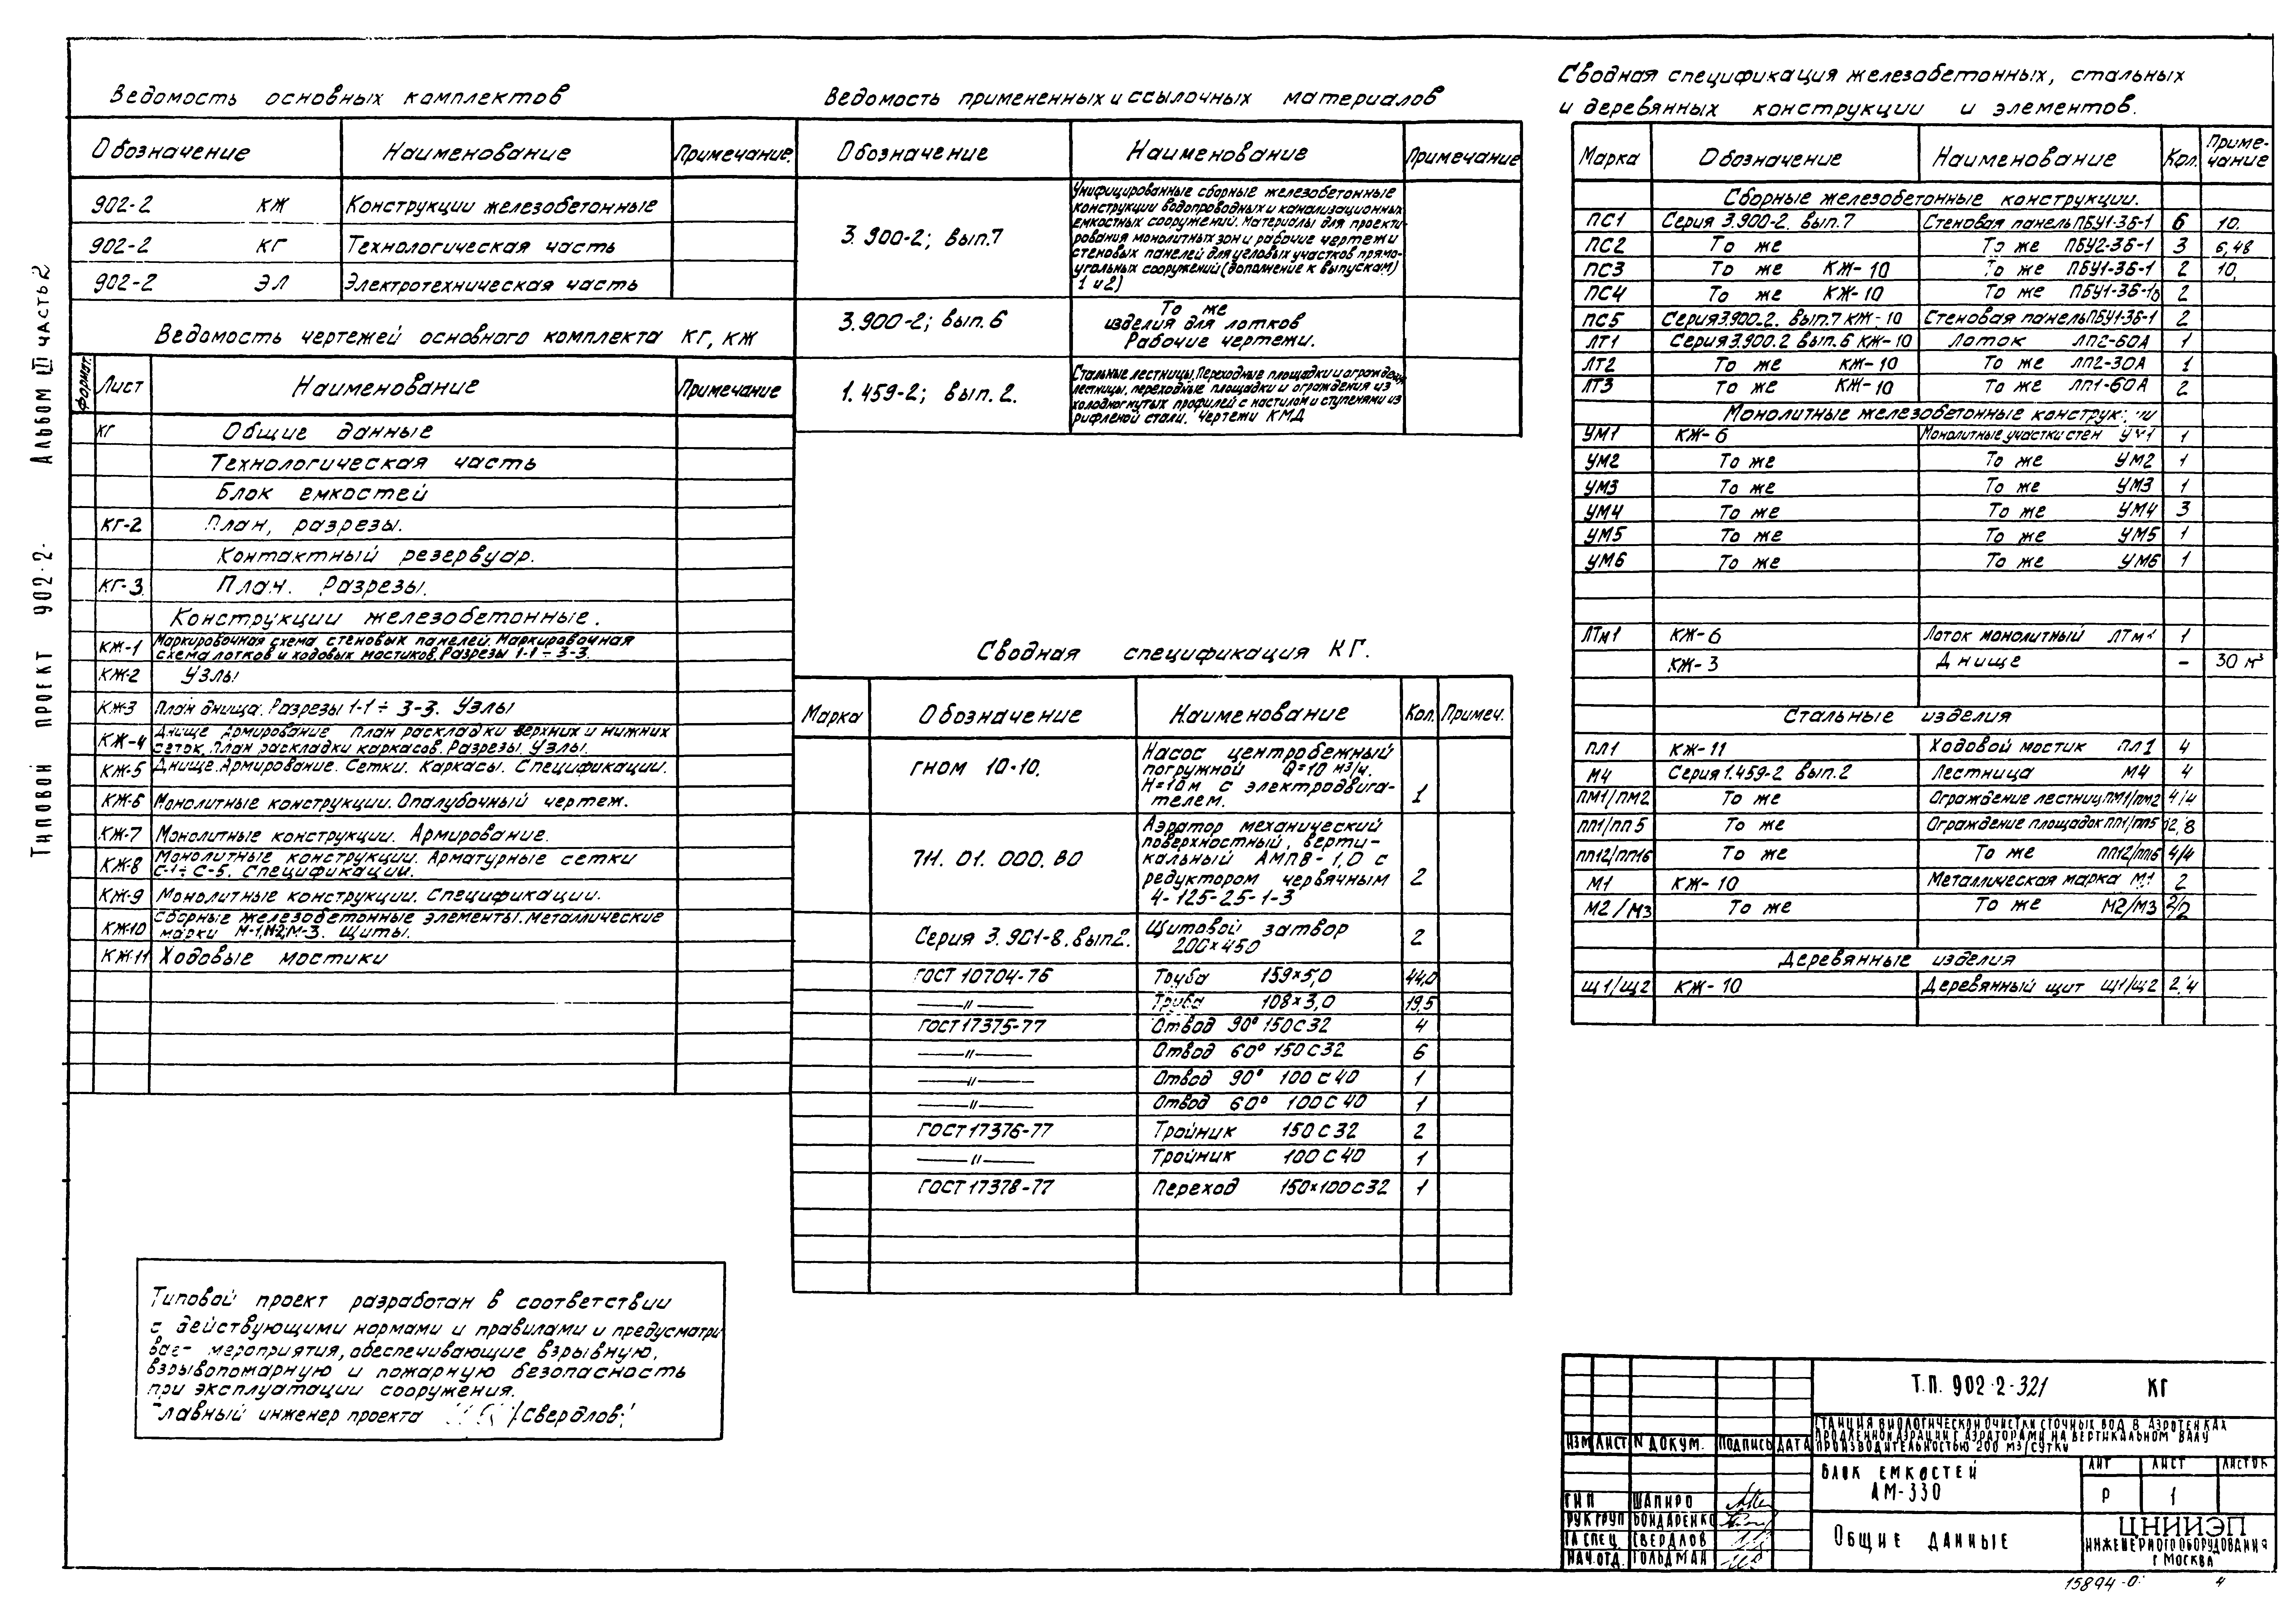 Типовой проект 902-2- Альбом III часть 2
Ведомость основных комплектов
Обозначение Наименование Примечание.
902-2 КЖ Конструкции железобетонные
902-2 КГ Технологическая часть
902-2 ЭЛ Электротехническая часть
Ведомость чертежей основного комплекта КГ, КЖ
Формат. Лист Наименование Примечание
КГ Общие данные
Технологическая часть
Блок емкостей
КГ-2 План, разрезы.
Контактный резервуар.
КГ-3 План. Разрезы.
Конструкции железобетонные.
КЖ-1 Маркировочная схема стеновых панелей. Маркировочная
схема лотков и ходовых мостиков. Разрезы 1-1÷3-3.
КЖ-2 Узлы
КЖ3 План днища. Разрезы 1-1÷3-3. Узлы
КЖ-4 Днище Армирование План раскладки верхних и нижних
сеток. План раскладки каркасов. Разрезы. Узлы.
КЖ-5 Днище. Армирование. Сетки. Каркасы. Спецификации.
КЖ-6 Монолитные конструкции. Опалубочный чертеж.
КЖ-7 Монолитные конструкции. Армирование.
КЖ-8 Монолитные конструкции. Арматурные сетки
С-1÷С-5. Спецификации.
КЖ-9 Монолитные конструкции. Спецификации.
КЖ10 Сборные железобетонные элементы. Металлические
марки М-1,М2,М-3. Щиты.
КЖ-11 Ходовые мостики
Типовой проект разработан в соответствии
с действующими нормами и правилами и предусматри
вает мероприятия, обеспечивающие взрывную,
взрывопожарную и пожарную безопасность
при эксплуатации сооружения.
Главный инженер проекта /Свердлов/
Ведомость примененных и ссылочных материалов
Обозначение Наименование Примечание
3.900-2; вып.7 Унифицированные сборные железобетонные
конструкции водопроводных и канализационных
емкостных сооружений. Материалы для проекти-
рования монолитных зон и рабочие чертежи
стеновых панелей для угловых участков прямо-
угольных сооружений (дополнение к выпускам)
1 и 2)
3.900-2; вып.6 То же
изделия для лотков
Рабочие чертежи.
1.459-2; вып. 2. Стальные лестницы, переходные площадки и огражден.
лестницы, переходные площадки и ограждения из
холодногнутых профилей с настилом и ступенями из
рифленой стали. Чертежи КМД
Сводная спецификация КГ.
Марка Обозначение Наименование Кол. Примеч.
ГНОМ 10-10. Насос центробежный
погружной Q=10 м3/ч.
Н=10м с электродвига-
телем. 1
7Н. 01. 000. ВО Аэратор механический
поверхностный, верти-
кальный АМПВ-1,0 с
редуктором червячным
Ч-125-25-1-3 2
Серия 3.901-8. вып2. Щитовой затвор
200×450 2
ГОСТ 10704-76 Труба 159×5,0 44,0
—"— Труба 108×3,0 19,5
ГОСТ 17375-77 Отвод 90° 150С32 4
—"— Отвод 60° 150С32 6
—"— Отвод 90° 100С40 1
—"— Отвод 60° 100С40 1
ГОСТ 17376-77 Тройник 150С32 2
—"— Тройник 100С40 1
ГОСТ 17378-77 Переход 150×100С32 1
Сводная спецификация железобетонных, стальных
и деревянных конструкции и элементов.
Марка Обозначение Наименование Кол. Приме-
чание
Сборные железобетонные конструкции.
ПС1 Серия 3.900-2. вып.7 Стеновая панель ПБУ1-36-1 6 10.
ПС2 То же То же ПБУ2-36-1 3 6,48
ПС3 То же КЖ-10 То же ПБУ1-36-1 2 10.
ПС4 То же КЖ-10 То же ПБУ1-36-1а 2
ПС5 Серия 3.900.2. вып.7 КЖ-10 Стеновая панель ПБУ1-36-1 2
ЛТ1 Серия 3.900.2 вып.6 КЖ-10 Лоток ЛП2-60А 1
ЛТ2 То же КЖ-10 То же ЛП2-30А 1
ЛТ3 То же КЖ-10 То же ЛП1-60А 2
Монолитные железобетонные конструкции
УМ1 КЖ-6 Монолитные участки стен УМ1 1
УМ2 То же То же УМ2 1
УМ3 То же То же УМ3 1
УМ4 То же То же УМ4 3
УМ5 То же То же УМ5 1
УМ6 То же То же УМ6 1
ЛТм1 КЖ-6 Лоток монолитный ЛТм1 1
КЖ-3 Днище – 30 м³
Стальные изделия
ПЛ1 КЖ-11 Ходовой мостик ПЛ1 4
М4 Серия 1.459-2 вып.2 Лестница М4 4
ПМ1/ПМ2 То же Ограждение лестниц ПМ1/ПМ2 4/4
ПП1/ПП5 То же Ограждение площадок ПП1/ПП5 12/8
ПП12/ПП16 То же То же ПП12/ПП16 4/4
М1 КЖ-10 Металлическая марка М1 2
М2/М3 То же То же М2/М3 2/2
Деревянные изделия
Щ1/Щ2 КЖ-10 Деревянный щит Щ1/Щ2 2/4
Т.П. 902-2-321 КГ
Станция биологической очистки сточных вод в аэротенках
продленной аэрации с аэраторами на вертикальном валу
производительностью 200 м3/сутки
Изм Лист N докум. Подпись Дата
Блок емкостей
АМ-330
Лит Лист Листов
Р 1
ГИП Шапиро
Рук груп Бондаренко
Гл спец. Свердлов
Нач.отд. Гольдман
Общие данные
ЦНИИЭП
инженерного оборудования
г Москва
15894-0 4